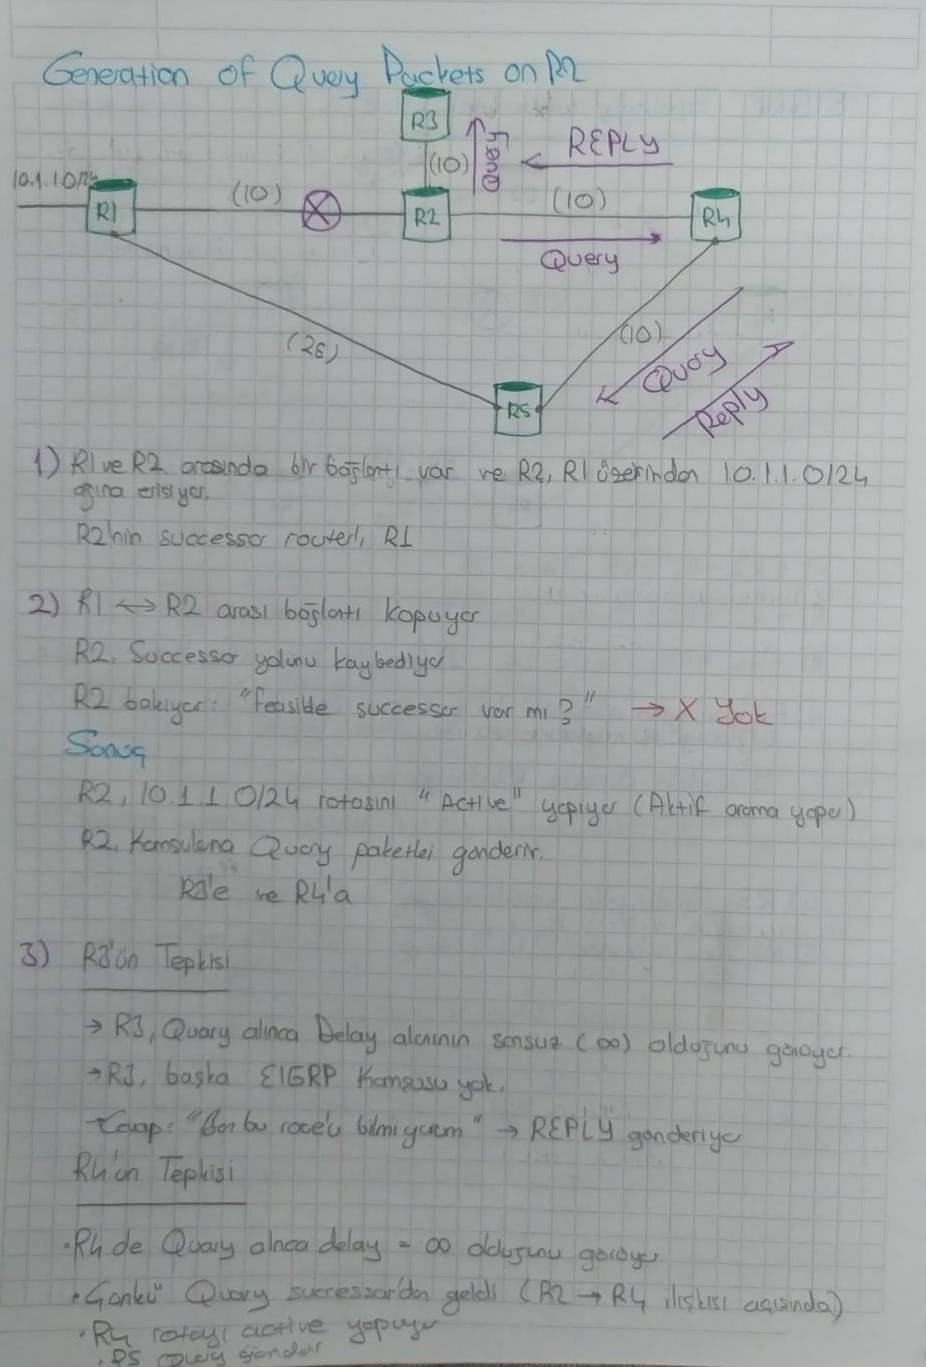 Generation of Query Packets on R2
R3
10.1.1.0/24
(10)
Query
REPLY
R1
(10)
R2
(10)
R4
Query
(25)
(10)
Query
Reply
R5
1) R1 ve R2 arasında bir bağlantı var ve R2, R1 üzerinden 10.1.1.0/24
ağına erişiyor.
R2'nin successor router'ı, R1
2) R1 ↔ R2 arası bağlantı kopuyor
R2, Successor yolunu kaybediyor
R2 bakıyor: "feasible successor var mı?" → X Yok
Sonuç
R2, 10.1.1.0/24 rotasını "Active" yapıyor (Aktif arama yapar)
R2, Komşularına Query paketleri gönderir.
R3'e ve R4'a
3) R3'ün Tepkisi
→ R3, Quary alınca Delay alanının sonsuz (∞) olduğunu görüyor.
→ R3, başka EIGRP Komşusu yok.
Cevap: "Ben bu route'u bilmiyorum" → REPLY gönderiyor
R4'ün Tepkisi
• R4 de Quary alınca delay = ∞ olduğunu görüyor
• Çünkü Quary successor'dan geldi (R2 → R4 ilişkisi açısından)
• R4 rotayı active yapıyor
• R5 query gönderir